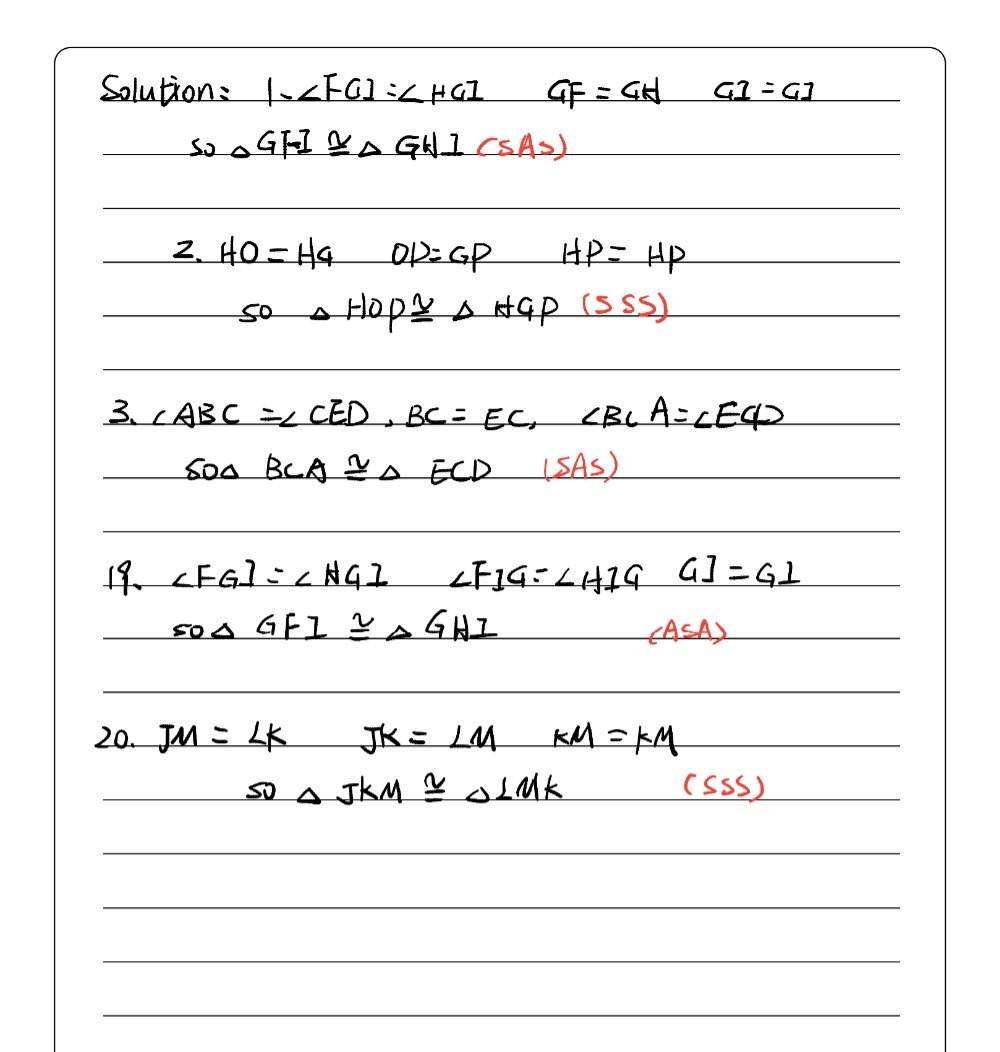 Solution: 1. ∠FGI=∠HGI GF=GH GI=GI
so △GFI≅△GHI (SAS)
2. HO=HG OP=GP HP=HP
so △HOP≅△HGP (SSS)
3. ∠ABC=∠CED, BC=EC, ∠BCA=∠ECD
so△BCA≅△ECD (SAS)
19. ∠FGI=∠HGI ∠FIG=∠HIG GI=GI
so△GFI≅△GHI (ASA)
20. JM=LK JK=LM KM=KM
so △JKM≅△LMK (SSS)